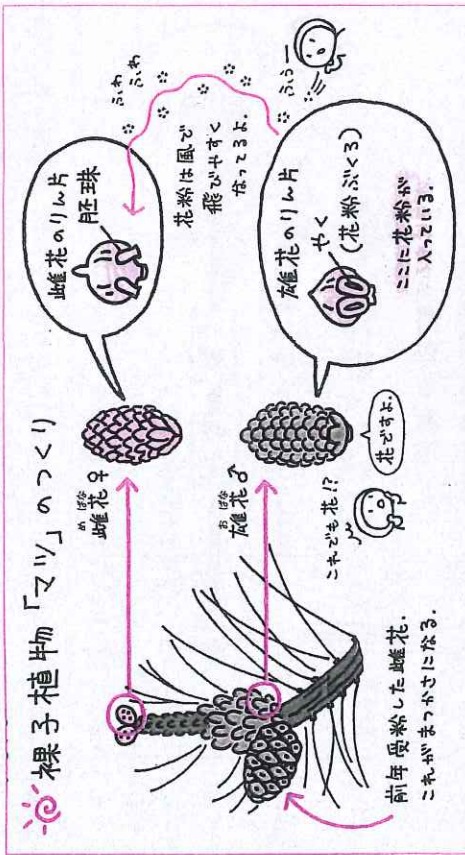 裸子植物「マツ」のつくり
雌花♀
めばな
雌花のりん片
胚珠
ふわ
ふわ
花粉は風で
飛びやすく
なってるよ。
ふぅー
雄花♂
おばな
雄花のりん片
やく
(花粉ぶくろ)
ここに花粉が
入っている.
これでも花!?
花ですよ.
前年受粉した雌花.
これがまつかさになる.